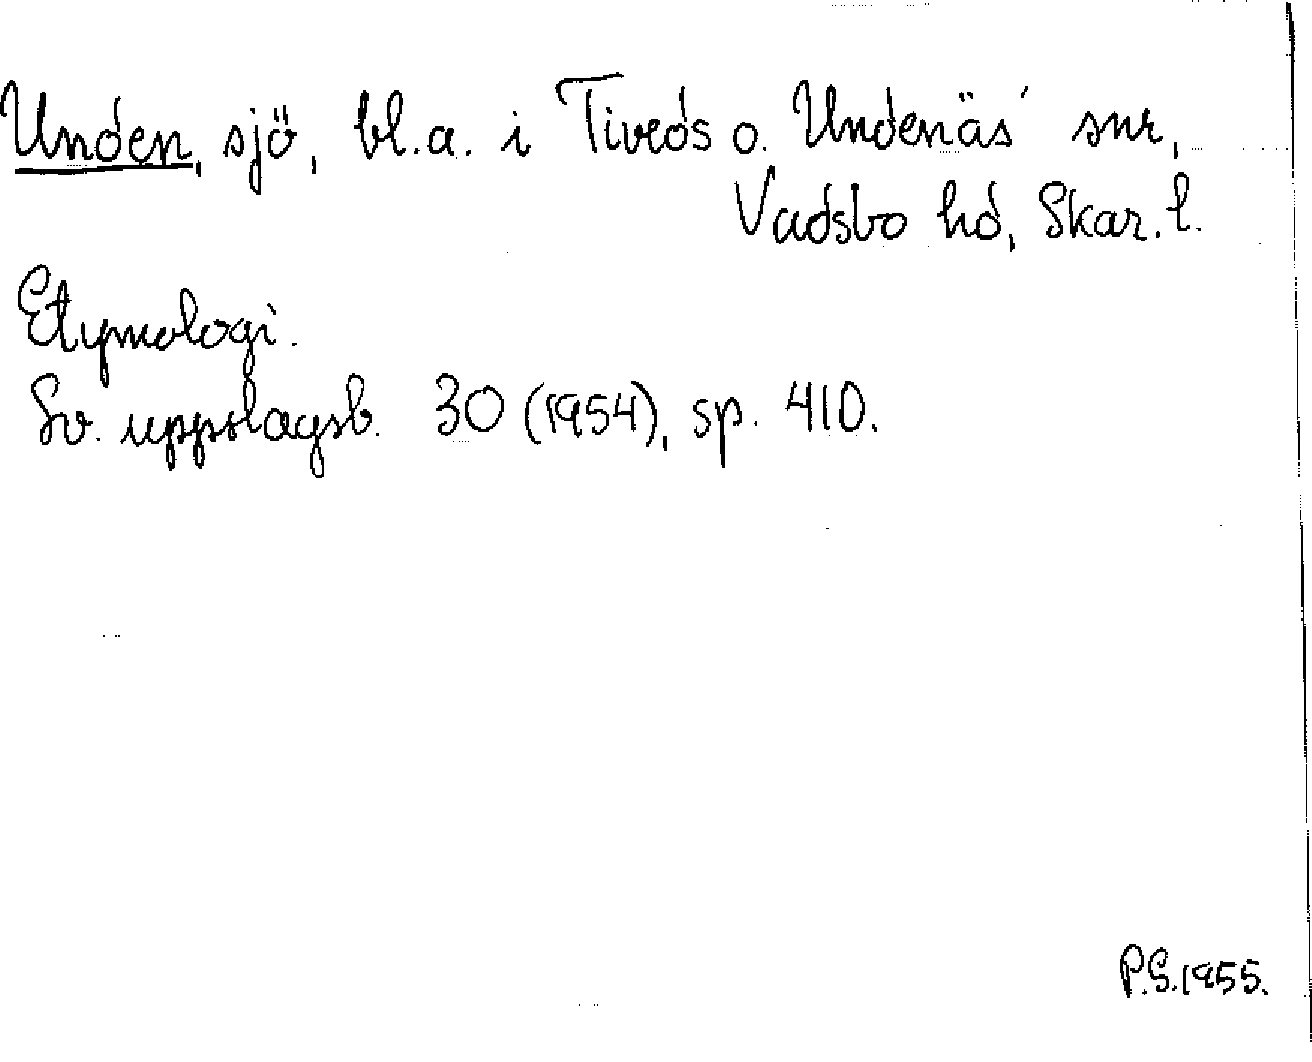 Unden, sjö, bl.a. i Tiveds o. Undenäs' snr,
Vadsbo hd, Skar. l.
Etymologi.
Sv. uppslagsb. 30 (1954), sp. 410.
P.S. 1955.